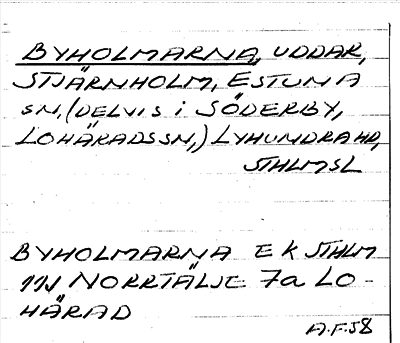 BYHOLMARNA, UDDAR,
STJÄRNHOLM, ESTUNA
SN, (DELVIS i SÖDERBY,
LOHÄRADSSN,) LYHUNDRA HD,
STHLMSL
BYHOLMARNA EK STHLM
11J NORRTÄLJE 7a LO-
HÄRAD
A.F.58